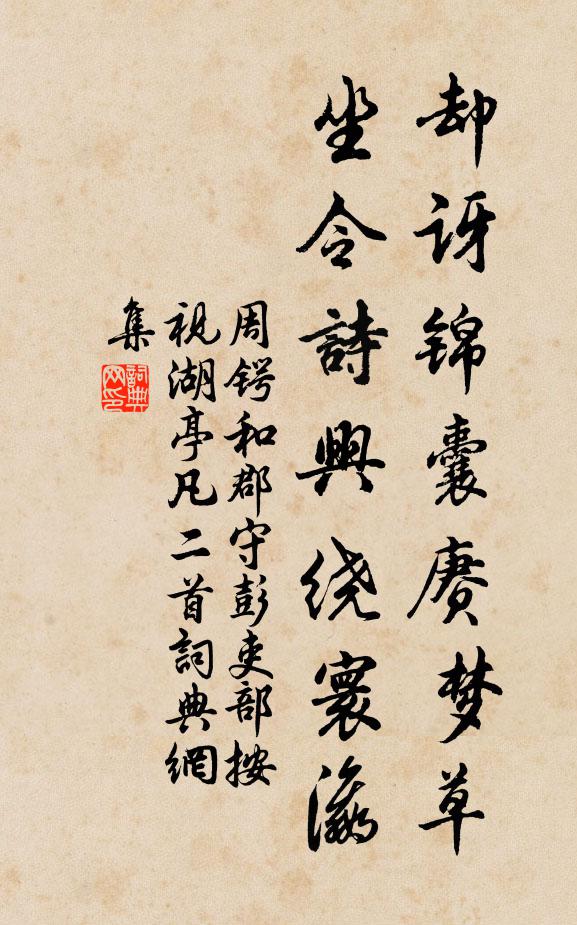 却讶锦囊赓梦草
坐令詩興绕寰瀛
周锷和郡守彭吏部按
视湖亭凡二首詞典網
集
詞典
网印